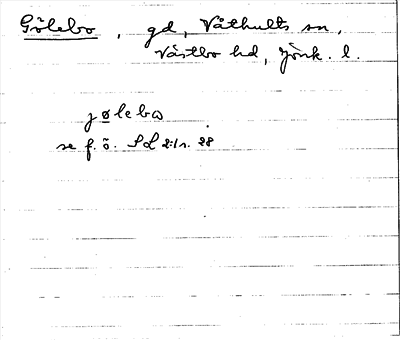 Gölebo, gd, Våthults sn,
Västbo hd, Jönk. l.
jølebω
se f. ö. SL 2:1 s. 28